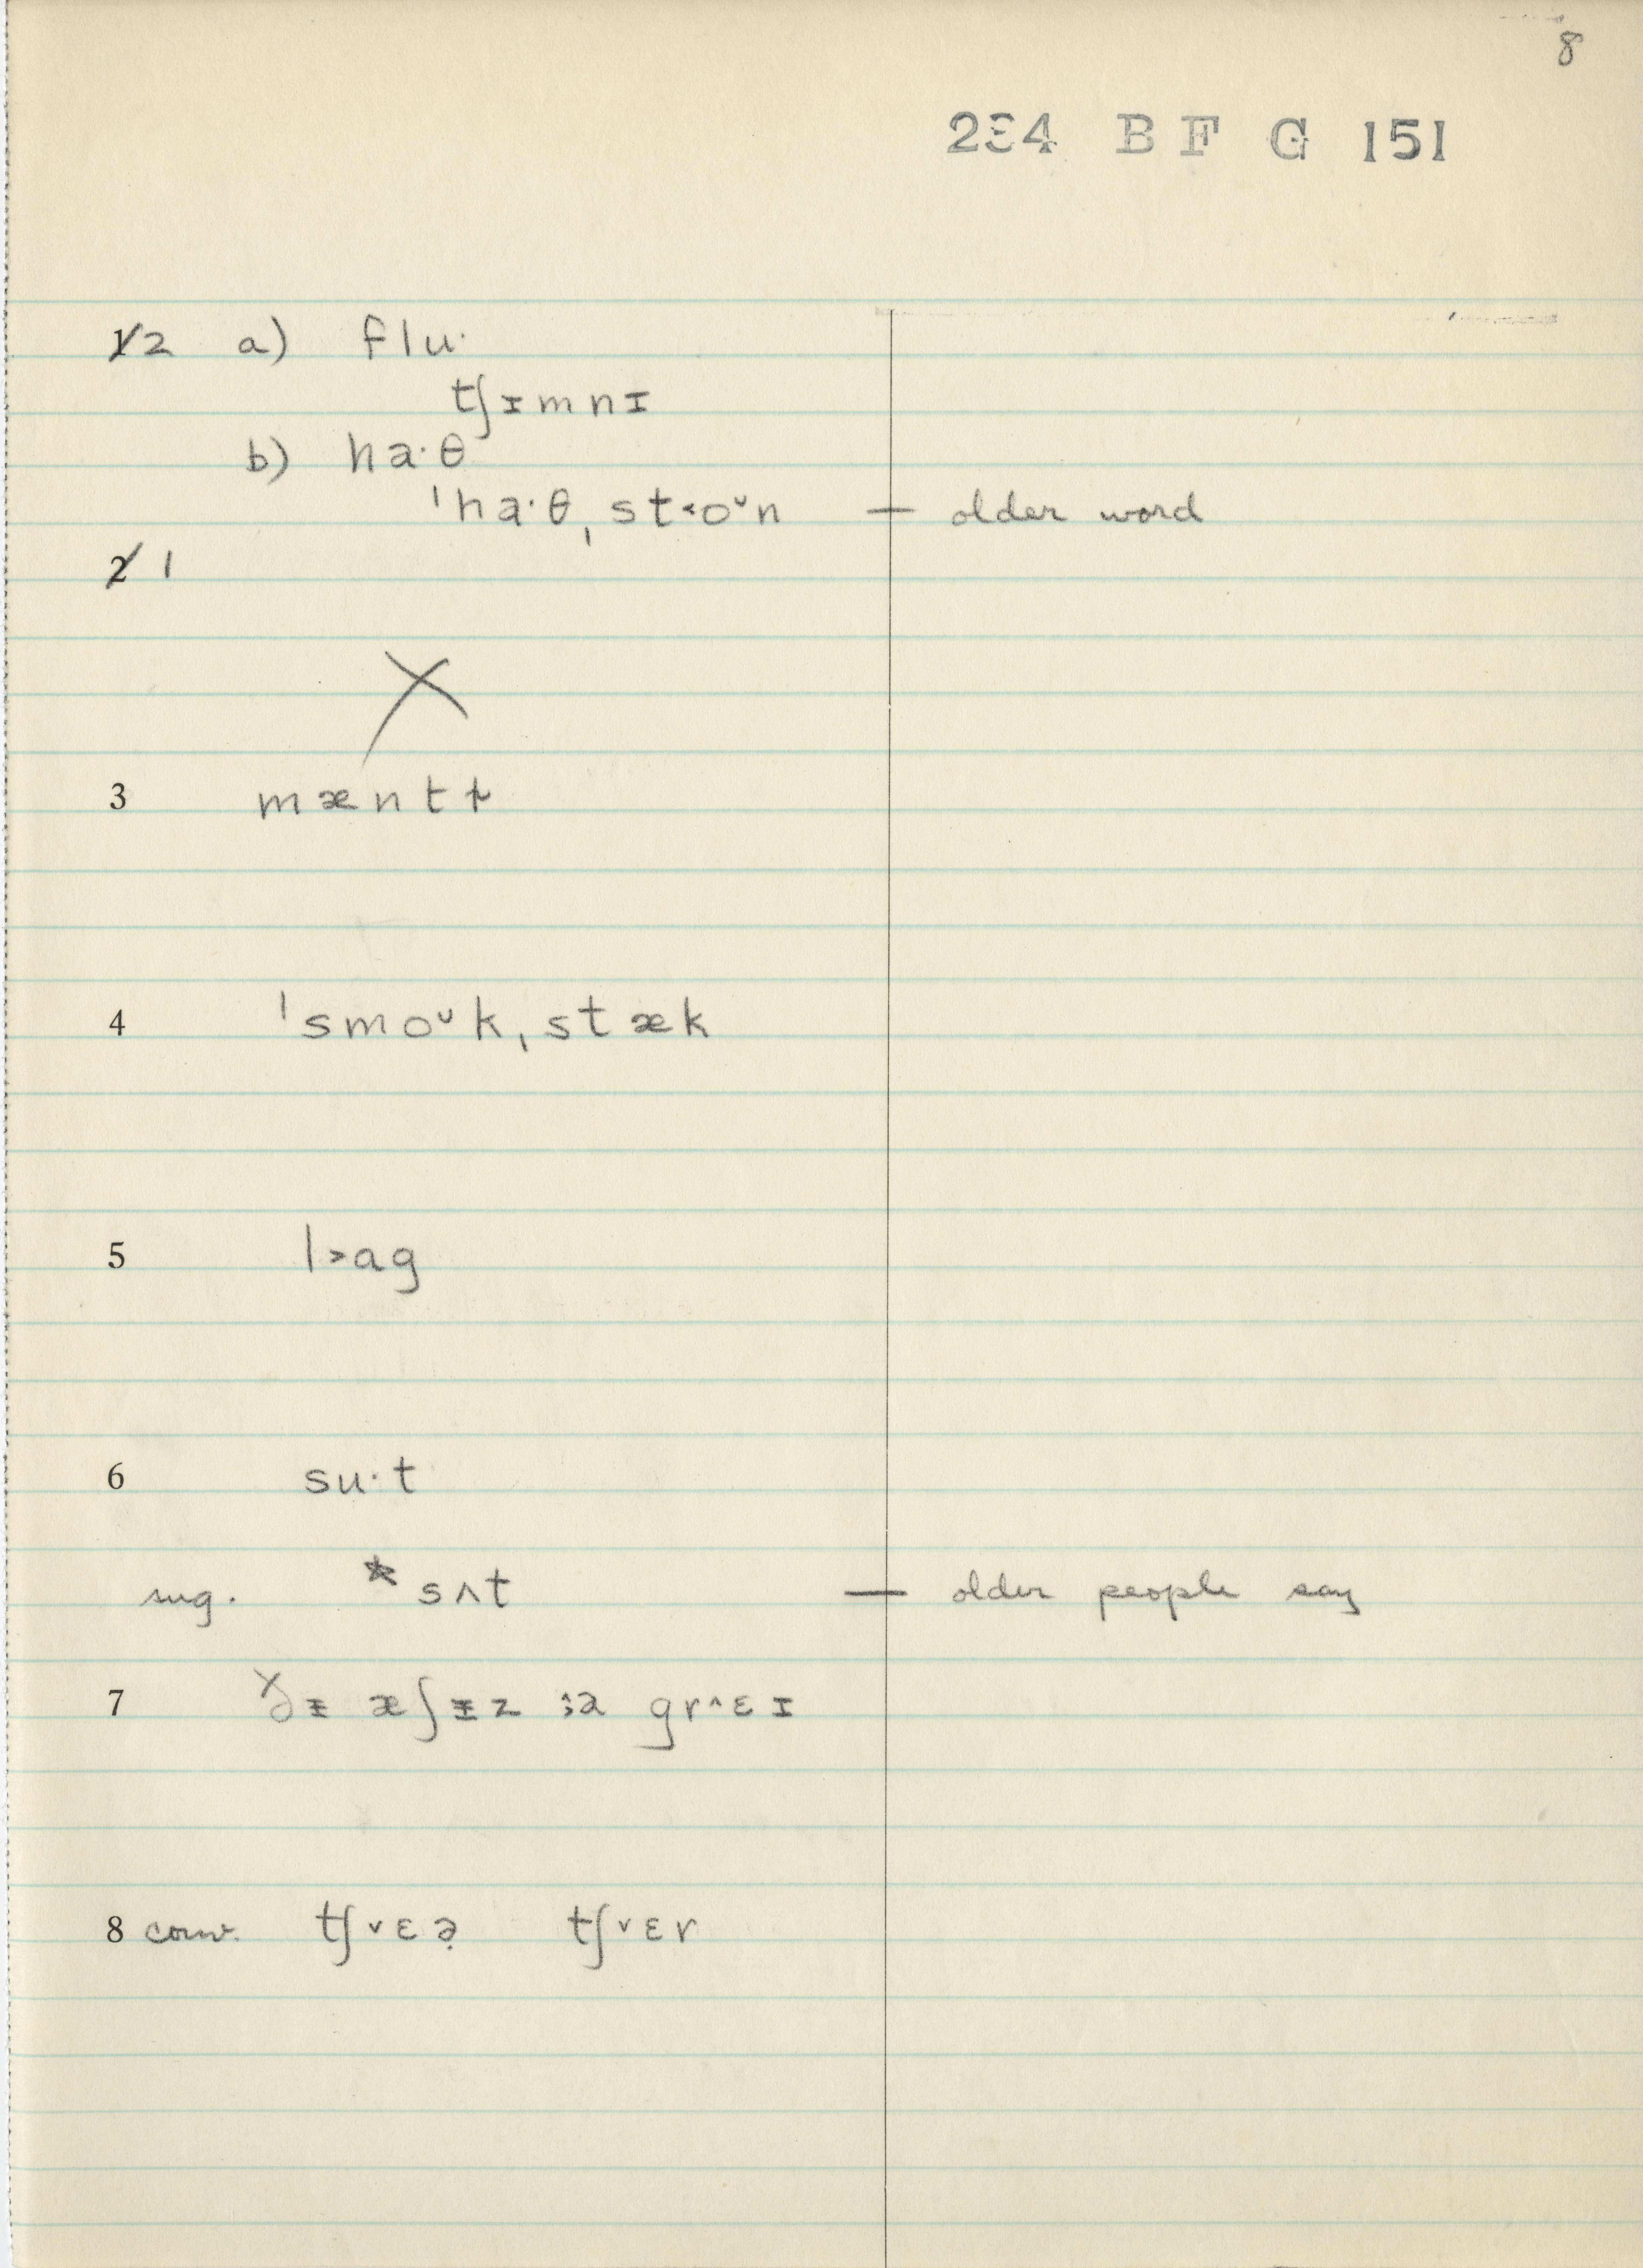 8
234 B F G 151
1 2 a) flu·
tʃɪmnɪ
b) ha·θ
ˈha·θˌst˂oᵛn — older word
2 1
X
3 mæntɚ
4 ˈsmoᵛkˌstæk
5 l˃ag
6 su·t
sug. *sʌt — older people say
7 æʃɪz grˆɛɪ
8 conv. tʃˇɛə̣ tʃˇɛr